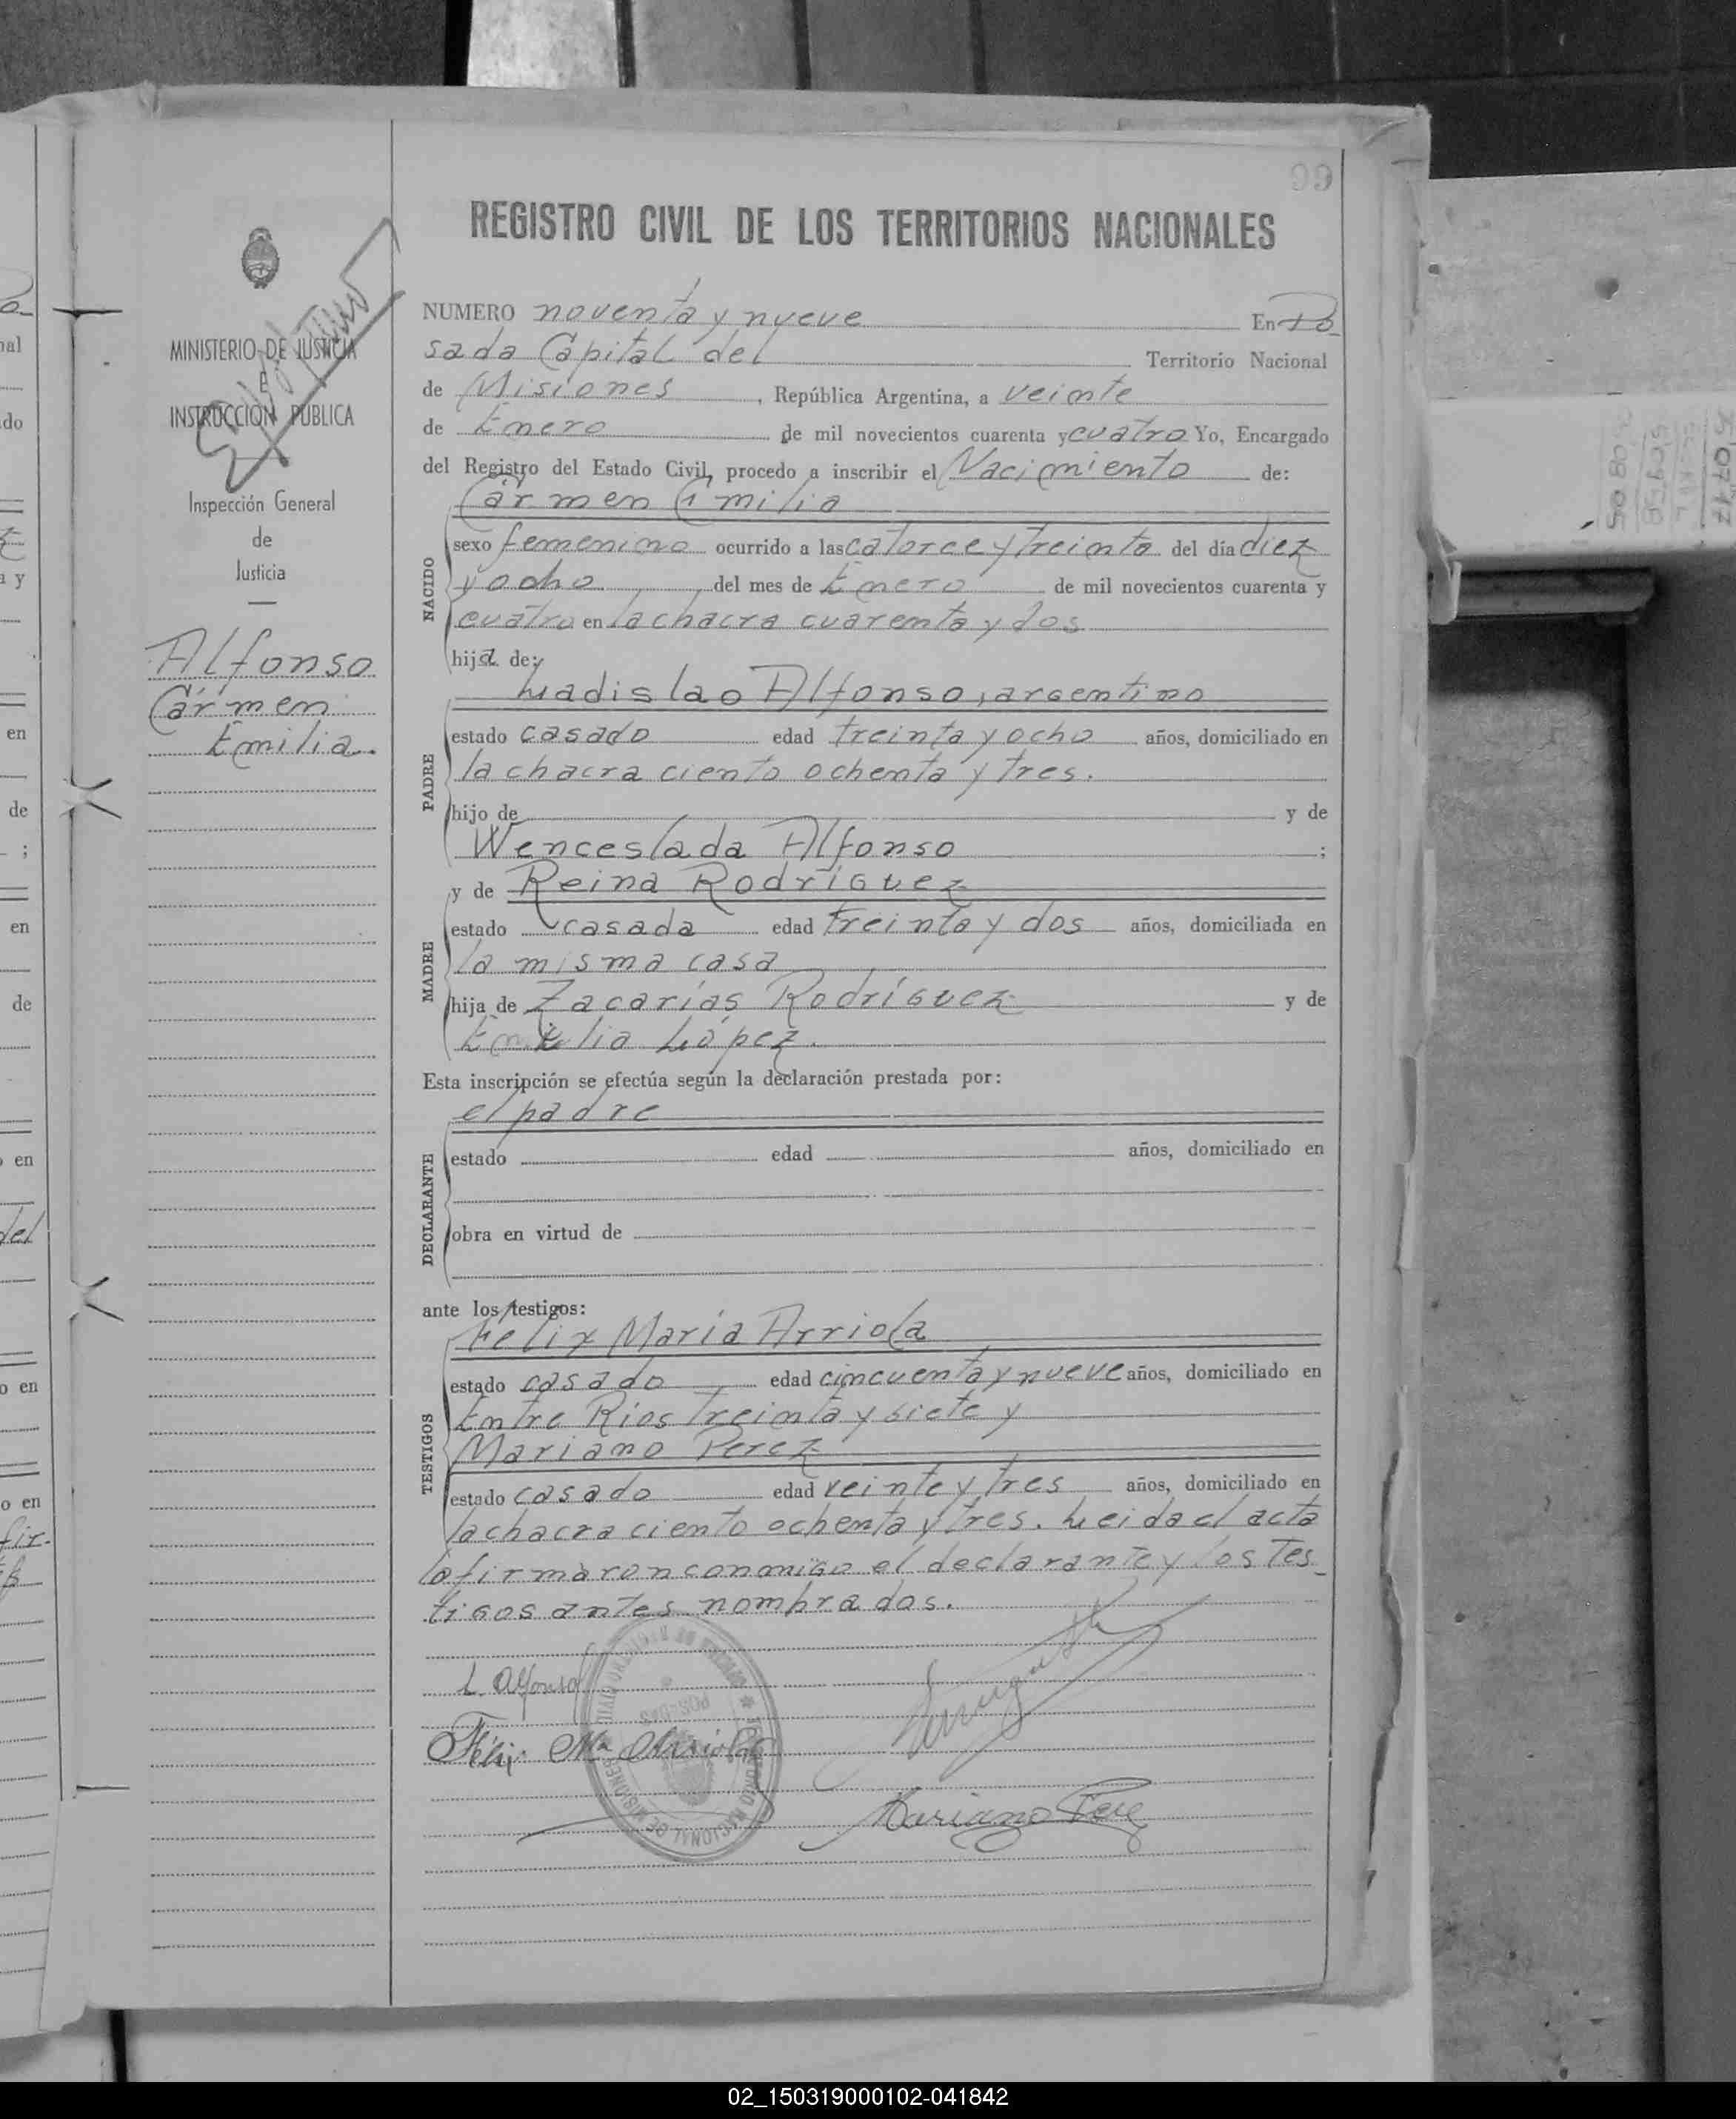 99
REGISTRO CIVIL DE LOS TERRITORIOS NACIONALES
MINISTERIO DE JUSTICIA
E
INSTRUCCION PUBLICA
Inspección General
de
Justicia
Alfonso
Cármen
Emilia.
NUMERO noventa y nueve En Po
sada Capital del Territorio Nacional
de Misiones, República Argentina, a veinte
de Enero de mil novecientos cuarenta y cuatro Yo, Encargado
del Registro del Estado Civil, procedo a inscribir el Nacimiento de:
Cármen Emilia
NACIDO
sexo femenino ocurrido a las catorce y treinta del día diez
y ocho del mes de Enero de mil novecientos cuarenta y
cuatro en la chacra cuarenta y dos
hija de:
Ladislao Alfonso, argentino
PADRE
estado casado edad treinta y ocho años, domiciliado en
la chacra ciento ochenta y tres.
hijo de y de
Wenceslada Alfonso ;
y de Reina Rodríguez
MADRE
estado casada edad treinta y dos años, domiciliada en
la misma casa
hija de Zacarías Rodríguez y de
Emilia López.
Esta inscripción se efectúa según la declaración prestada por:
el padre
DECLARANTE
estado edad años, domiciliado en
obra en virtud de
ante los testigos:
Félix María Arriola
TESTIGOS
estado casado edad cincuenta y nueve años, domiciliado en
Entre Ríos treinta y siete y
Mariano Perez
estado casado edad veinte y tres años, domiciliado en
la chacra ciento ochenta y tres. Leida el acta
la firmaron conmigo el declarante y los tes_
tigos antes nombrados.
L. Alfonso
Félix Mª Arriola
Mariano Perez
02_150319000102-041842